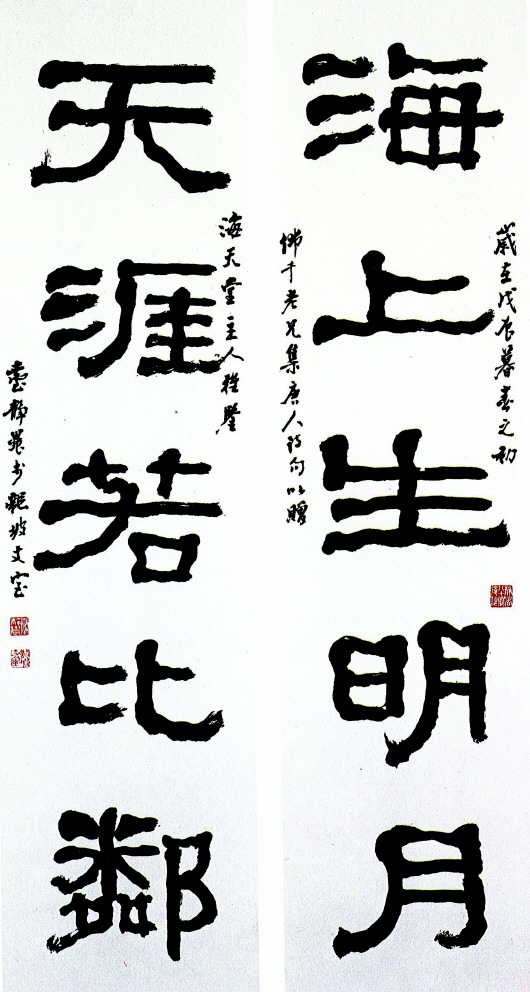 海上生明月
歲在戊辰暮春之初
佛千老兄集唐人詩句以贈
天涯若比鄰
海天堂主人雅鑒
臺靜農書龍坡丈室